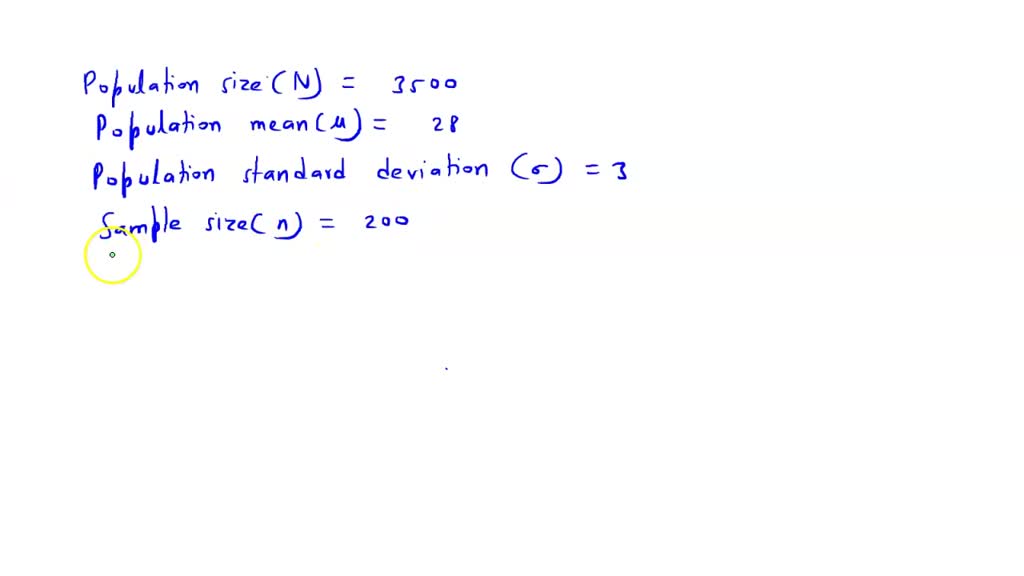 Population size (N) = 3500
Population mean (μ) = 28
Population standard deviation (σ) = 3
Sample size (n) = 200